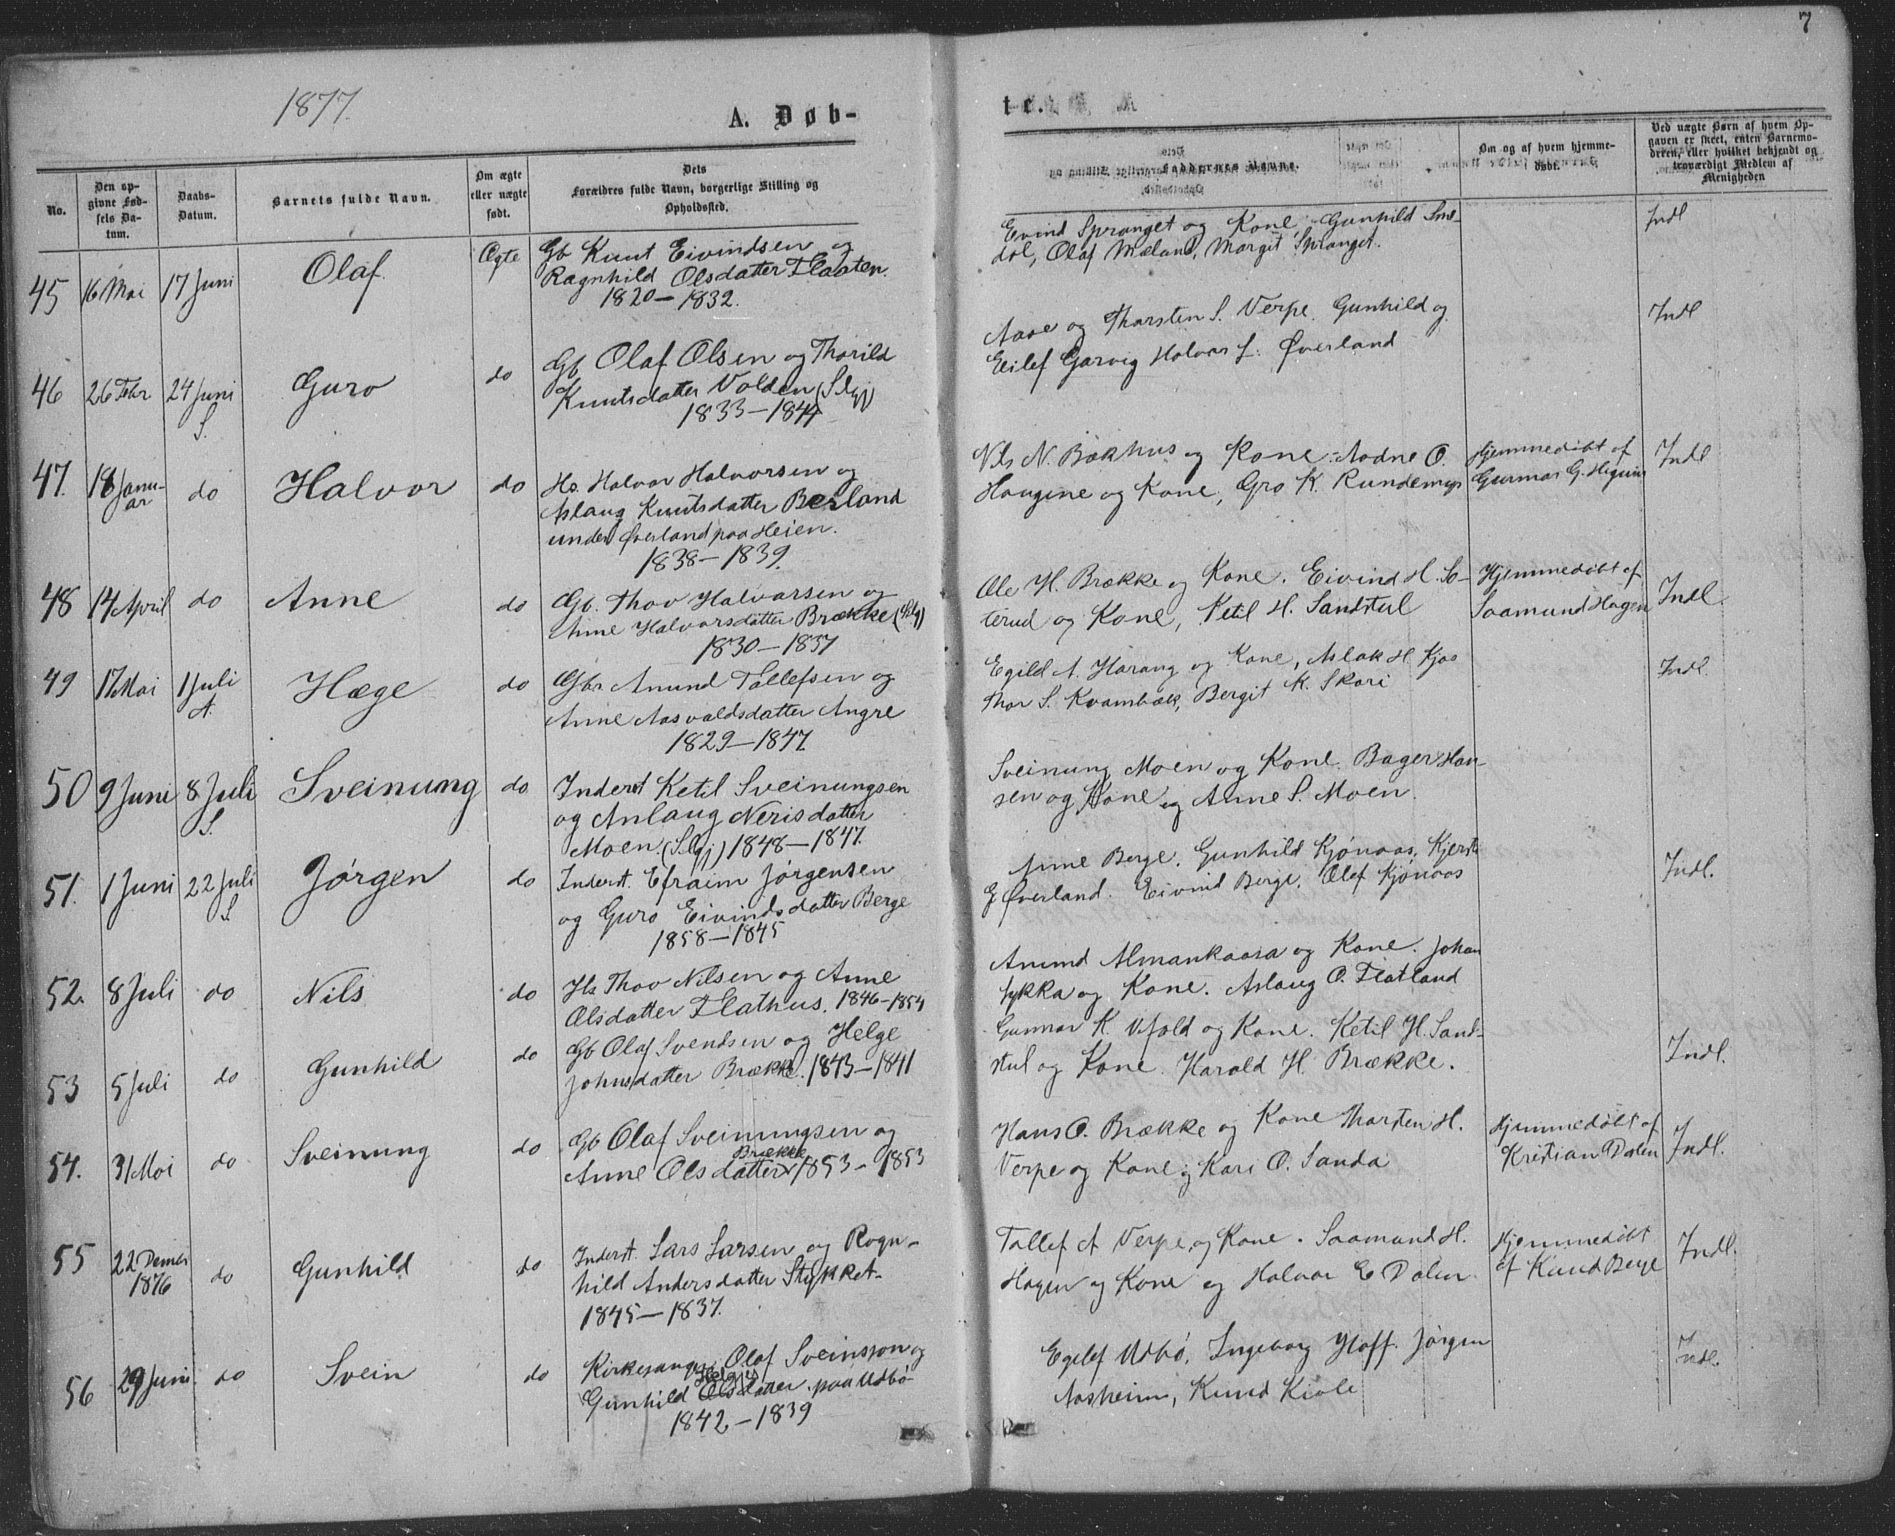 7
1877.
A. Døb-
te.
No.
Den op-
givne Fød-
sels Da-
tum.
Daabs-
Datum.
Barnets fulde Navn.
Om ægte
eller uægte
født.
Dets
Forældres fulde Navn, borgerlige Stilling og
Opholdssted.
Faddernes Navne.
Om og af hvem hjemme-
døbt.
Ved uægte Børn af hvem Op-
gaven er skeet, enten Barnemo-
deren, eller hvilket bekjendt og
troværdigt Medlem af
Menigheden
45 16 Mai 17 Juni Olaf Ægte Gb Knut Eivindsen og
Ragnhild Olsdatter Flaaten.
1820 - 1832.
Eivind Spranget og Kone, Gunhild
Olaf Mæland, Margit Spranget.
Indl
46 26 Febr 24 Juni
S.
Guro do Gb Olaf Olsen og Thorild
Knutsdatter Volden
1833 - 1844
Aase og Thorsten S. Verpe. Gunhild og
Eilef Garvig Halvor Øverland
Indl
47. 18 Janu-
ar
do Halvor do Hs. Halvor Halvorsen og
Aslaug Knutsdatter Berland
under Øverland paa Heien.
1838 - 1839.
Nils N. Bakhus og Kone. Aadne O.
Haugene og Kone, Gro K. Rundemyr
Hjemmedøbt af
Gunnar G.
Indl
48 14 April do Anne do Gb. Thov Halvorsen og
Anne Halvorsdatter Brække
1830 - 1837
Ole H. Brække og Kone. Eivind H. So-
terud og Kone, Ketil H. Sandstul
Hjemmedøbt af
Saamund Hagen
Indl.
49 17 Mai 1 Juli
A.
Hæge do Gbr Anund Tallefsen og
Anne Aasvaldsdatter Angre
1829 - 1847.
Egild A. Haraug og Kone, Aslak H. Kjos
Thor S. Kvambæk, Bergit K. Skori
Indl.
50 9 Juni 8 Juli
S.
Sveinung do Inderst Ketil Sveinungsen
og Anlaug Nerisdatter
Moen. 1848 - 1847.
Sveinung Moen og Kone. Bager Han-
sen og Kone og Anne S. Moen.
51. 1 Juni 22 Juli
S
Jørgen do Inderst. Efraim Jørgensen
og Guro Eivindsdatter Berge
1858 - 1845
Anne Berge. Gunhild Kjønaas, Kjersti
G Øverland. Eivind Berge. Olef Kjønaas
Indl.
52. 8 Juli do Nils do Hs Thov Nilsen og Anne
Olsdatter Flathus. 1846 - 1854
Anund Almankaasa og Kone. Johan
Lykka og Kone. Aslaug O. Flatland
53 5 Juli do Gunhild do Gb Olaf Svendsen og Helge
Johnsdatter Brække. 1843 - 1841
Gunnar K. Ufold og Kone. Ketil H. Sand-
stul og Kone. Harald H. Brække.
Indl.
54. 31 Mai do Sveinung do Gb Olaf Sveinungsen og
Brække
Anne Olsdatter 1853 - 1853
Hans O. Brække og Kone Thorsten H.
Verpe og Kone og Kari O. Sanda
Hjemmedøbt af
Kristian Dalen
Indl.
55 22 Decmbr
1876
do Gunhild do Inderst. Lars Larsen og Ragn-
hild Andersdatter Stykket.
1845 - 1837.
Tallef A Verpe og Kone. Saamund H.
Hagen og Kone og Halvor E Dalen
Hjemmedøbt
af Knud Berge
Indl.
56 29 Juni do Svein do Kirkesanger Olaf Sveinsson og
Helge
Gunhild Olsdatter paa Udbø
1842 - 1839
Egelef Udbø, Ingeborg Hoff. Jørgen
Aasheim, Knud Kivle
Indl.